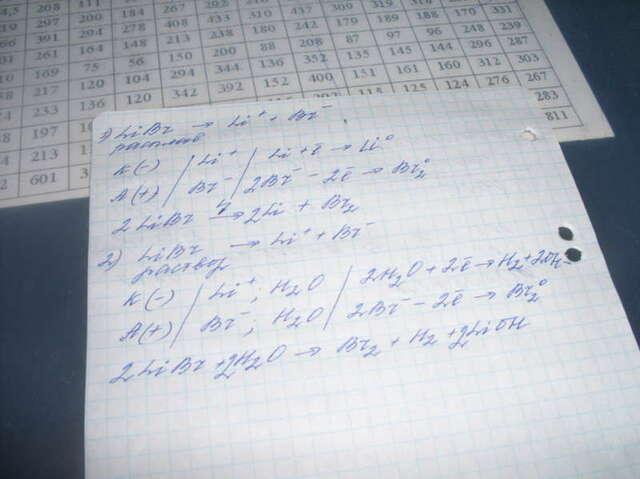 4,5 208 111 200 184 267 292 408 433 310 437 309 319 310
19 297 200 294 278 213 238 180 242 179 189 188 170 331
66 391 294 164 148 150 200 88 208 87 97 96 248 239
01 261 164 56 294 344 136 352 135 145 144 296 287
10 169 75 104 294 392 152 400 151 161 160 312 303
38 217 120 120 342 292 115 125 124 276 267
24 233 136 283
48 197 811
34 213
2 601
1) LiBr → Li⁺ + Br⁻
расплав
К(-) | Li⁺ | Li⁺+ē → Li⁰
А(+) | Br⁻ | 2Br⁻ - 2ē → Br₂⁰
2LiBr → 2Li + Br₂
2) LiBr → Li⁺ + Br⁻
раствор
К(-) | Li⁺; H₂O | 2H₂O + 2ē → H₂ + 2OH⁻
А(+) | Br⁻; H₂O | 2Br⁻ - 2ē → Br₂⁰
2LiBr + 2H₂O → Br₂ + H₂ + 2LiOH